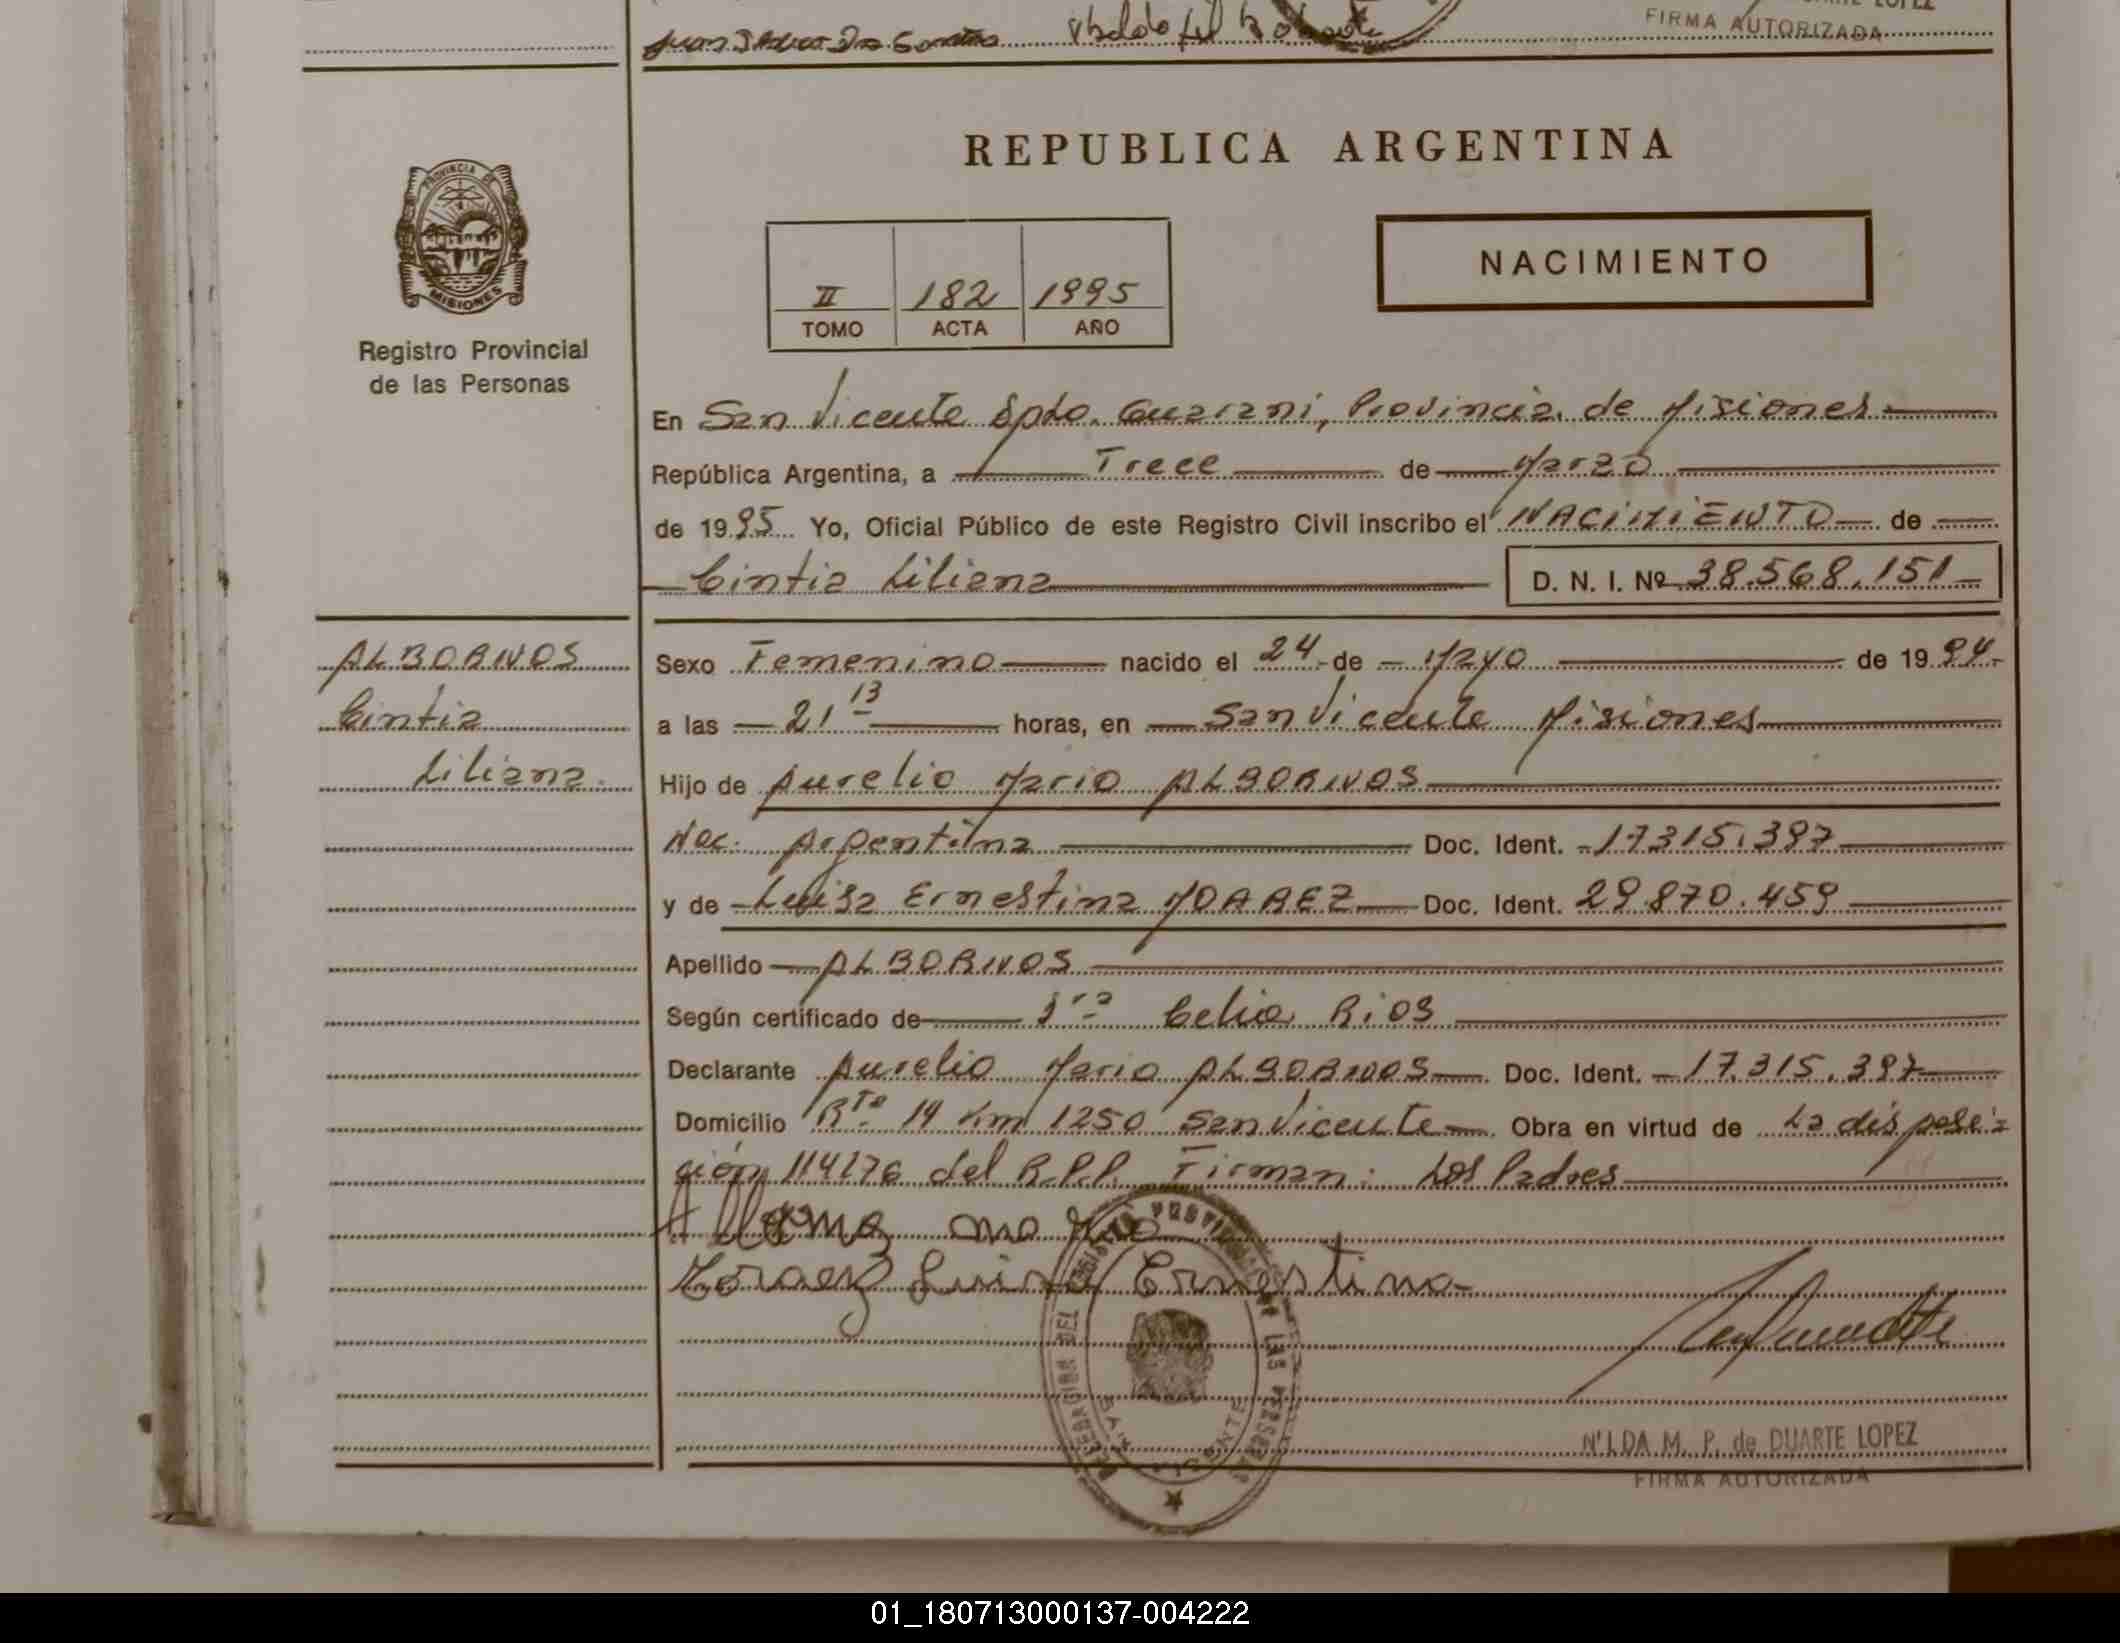 FIRMA AUTORIZADA
REPUBLICA ARGENTINA
PROVINCIA DE
MISIONES
Registro Provincial
de las Personas
NACIMIENTO
II 182 1995
TOMO ACTA AÑO
En San Vicente Dpto. Guarani, Provincia de Misiones
República Argentina, a Trece de Marzo
de 1995 Yo, Oficial Público de este Registro Civil inscribo el NACIMIENTO de
Cintia Liliana D. N. I. Nº 38.568.151
ALBORNOS
Cintia
Liliana.
Sexo Femenino nacido el 24 de Mayo de 1994
a las 21 13 horas, en San Vicente Misiones
Hijo de Aurelio Mario ALBORNOS
Nac. Argentina Doc. Ident. 17.315.397
y de Luisa Ernestina MOAREZ Doc. Ident. 29.870.459
Apellido ALBORNOS
Según certificado de Sra Celia Rios
Declarante Aurelio Mario ALBORNOS Doc. Ident. 17.315.397
Domicilio Rta 14 Km 1250 San Vicente Obra en virtud de La disposi-
ción 114176 del R.P.P. Firman: Los Padres
Luisa Ernestina
DELEGACION DEL REGISTRO PROVINCIAL DE LAS PERSONAS
SAN VICENTE
NILDA M. P. de DUARTE LOPEZ
FIRMA AUTORIZADA
01_180713000137-004222